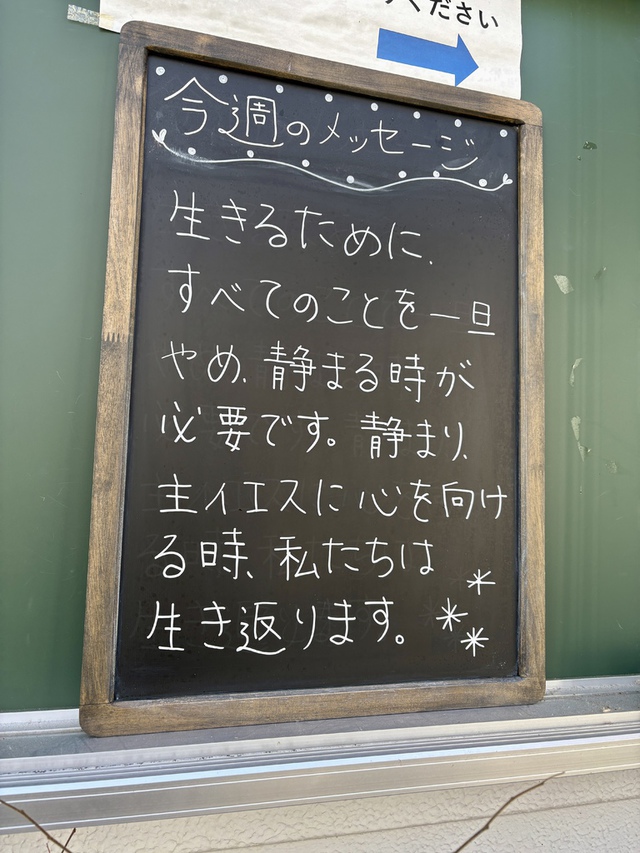 ください
今週のメッセージ
生きるために、
すべてのことを一旦
やめ、静まる時が
必要です。静まり、
主イエスに心を向け
る時、私たちは
生き返ります。